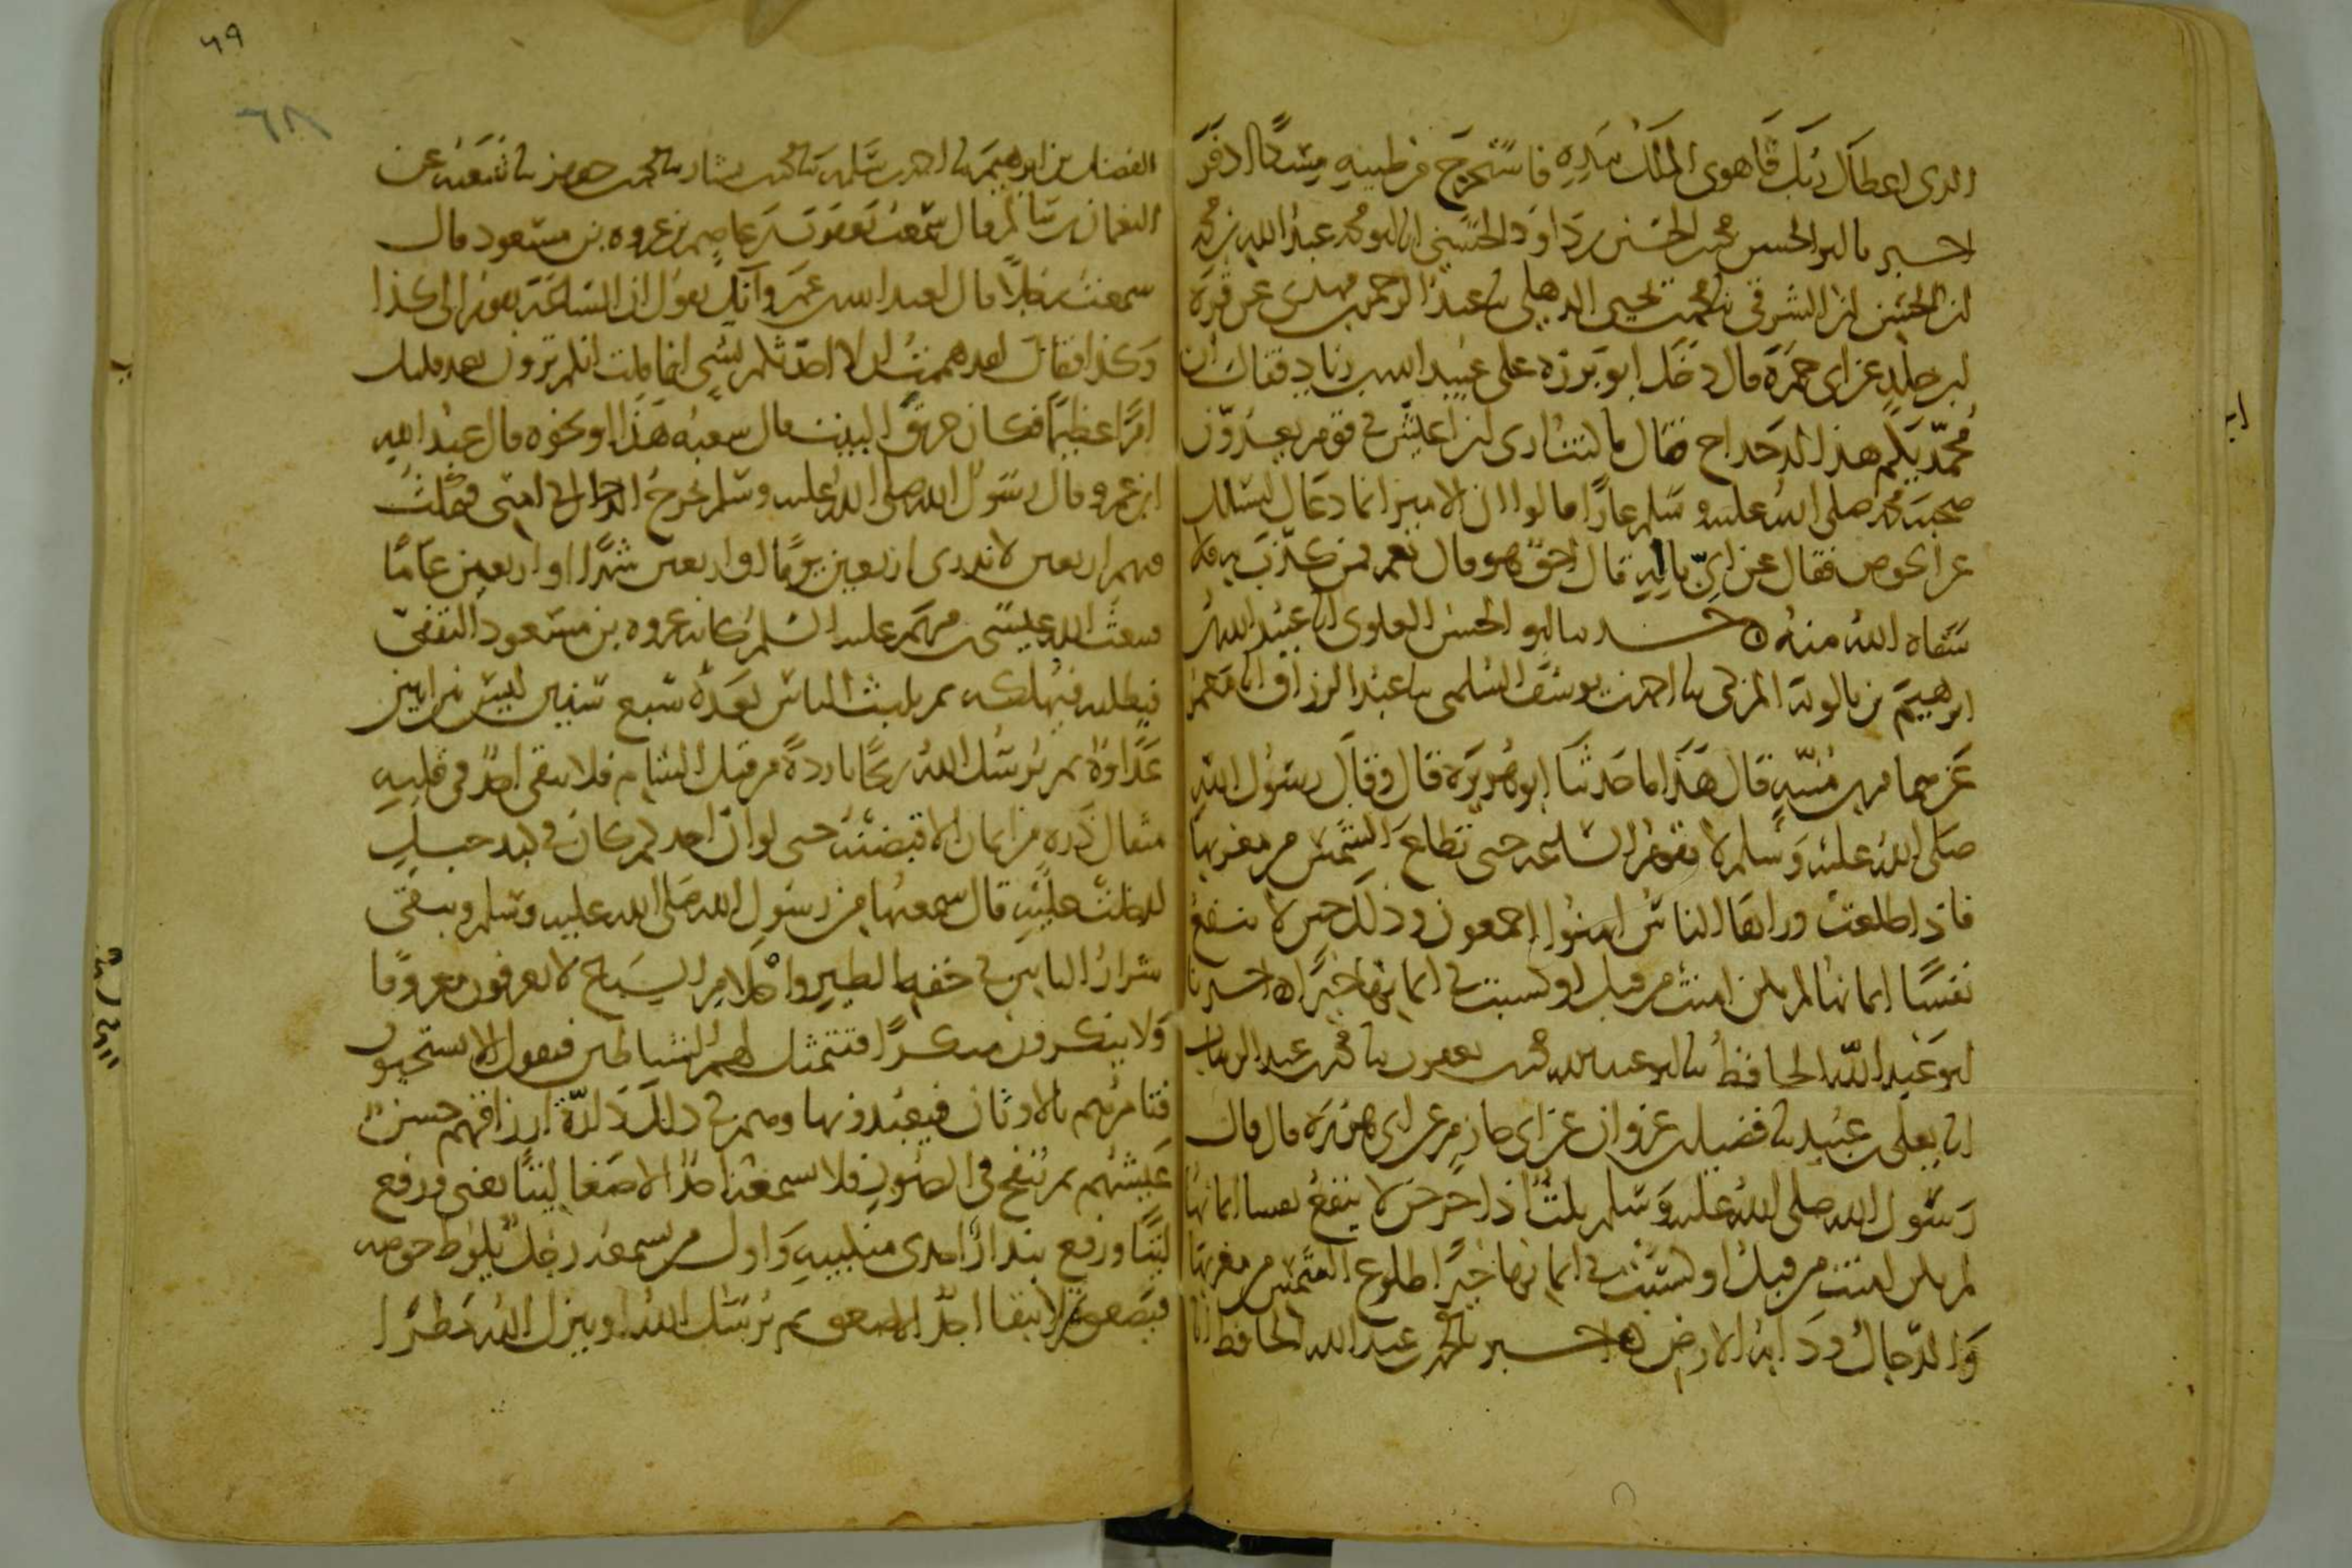 الذي اعطاك ربك فاهوى الملك بيده فاستخرج من طينه مسكا اذفر
اخبرنا ابو الحسن محمد بن الحسين بن داود الحسني انا ابو محمد عبد الله بن محمد
بن الحسن بن الشرقي نا محمد بن يحيى الذهلي نا عبد الرحمن بن مهدي عن قرة
بن خلد عن ابي حمزة قال دخل ابو برزه على عبيد الله بن زياد فقال ان
محمديكم هذا لدحداح فقال ما كنت ارى ان اعيش في قوم يعدون
صحبة محمد صلى الله عليه وسلم عارا قالوا ان الامير انما دعاك ليسلك
عن الحوض فقال عن اي باليه قال احق هو قال نعم فمن كذب به فلا
سقاه الله منه ه حدثنا ابو الحسن العلوي انا عبيد الله بن
ابرهيم بن بالويه المزكي نا احمد بن يوسف السلمي نا عبد الرزاق انا معمر
عن همام بن منبه قال هذا ما حدثنا ابو هريرة قال وقال رسول الله
صلى الله عليه وسلم لا تقوم الساعه حتى تطلع الشمس من مغربها
فاذا طلعت وراها الناس امنوا اجمعون وذلك حين لا ينفع
نفسا ايمانها لم تكن امنت من قبل او كسبت في ايمانها خيرا ه اخبرنا
ابو عبد الله الحافظ نا ابو عبد الله محمد بن يعقوب نا محمد بن عبد الوهاب
انا يعلى بن عبيد نا فضيل بن غزوان عن ابي حازم عن ابي هريرة قال قال
رسول الله صلى الله عليه وسلم ثلث اذا خرجن لا ينفع نفسا ايمانها
لم تكن امنت من قبل او كسبت في ايمانها خيرا طلوع الشمس من مغربها
والدجال ودابة الارض ه اخبرنا محمد بن عبد الله الحافظ انا
٦٩
٦٨
الفضل بن ابرهيم نا احمد بن سلمه نا محمد بن بشار نا محمد بن جعفر نا شعبه عن
النعمان بن سالم قال سمعت يعقوب بن عاصم بن عروه بن مسعود قال
سمعت رجلا قال لعبد الله بن عمرو انك تقول ان الساعة تقوم الى كذا
وكذا فقال لقد هممت ان لا احدثكم بشي انما قلت انكم ترون بعد قليل
امرا عظيما فكان حريق البيت قال شعبه هذا او نحوه قال عبد الله
ابن عمرو قال رسول الله صلى الله عليه وسلم يخرج الدجال في امتي فيمكث
فيهم اربعين لا ندري اربعين يوما او اربعين شهرا او اربعين عاما
فيبعث الله عيسى بن مريم عليه السلم كانه عروه بن مسعود الثقفي
فيطلبه فيهلكه ثم يلبث الناس بعده سبع سنين ليس بين اثنين
عداوة ثم يرسل الله ريحا باردة من قبل الشام فلا يبقى احد في قلبه
مثقال ذره من ايمان الا قبضته حتى لو ان احدكم كان في كبد جبل
لدخلت عليه قال سمعتها من رسول الله صلى الله عليه وسلم ويبقى
شرار الناس في خفه الطير واحلام السباع لا يعرفون معروفا
ولا ينكرون منكرا فتتمثل لهم الشياطين فيقول الا تستحيون
فتامرهم بالاوثان فيعبدونها وهم في ذلك دارة ارزاقهم حسن
عيشهم ثم ينفخ في الصور فلا يسمعه احد الا اصغا ليتا يعني ورفع
ليتا واول من يسمعه رجل يلوط حوضه
فيصعق ثم لا يبقا احد الا صعق ثم يرسل الله او ينزل الله مطرا